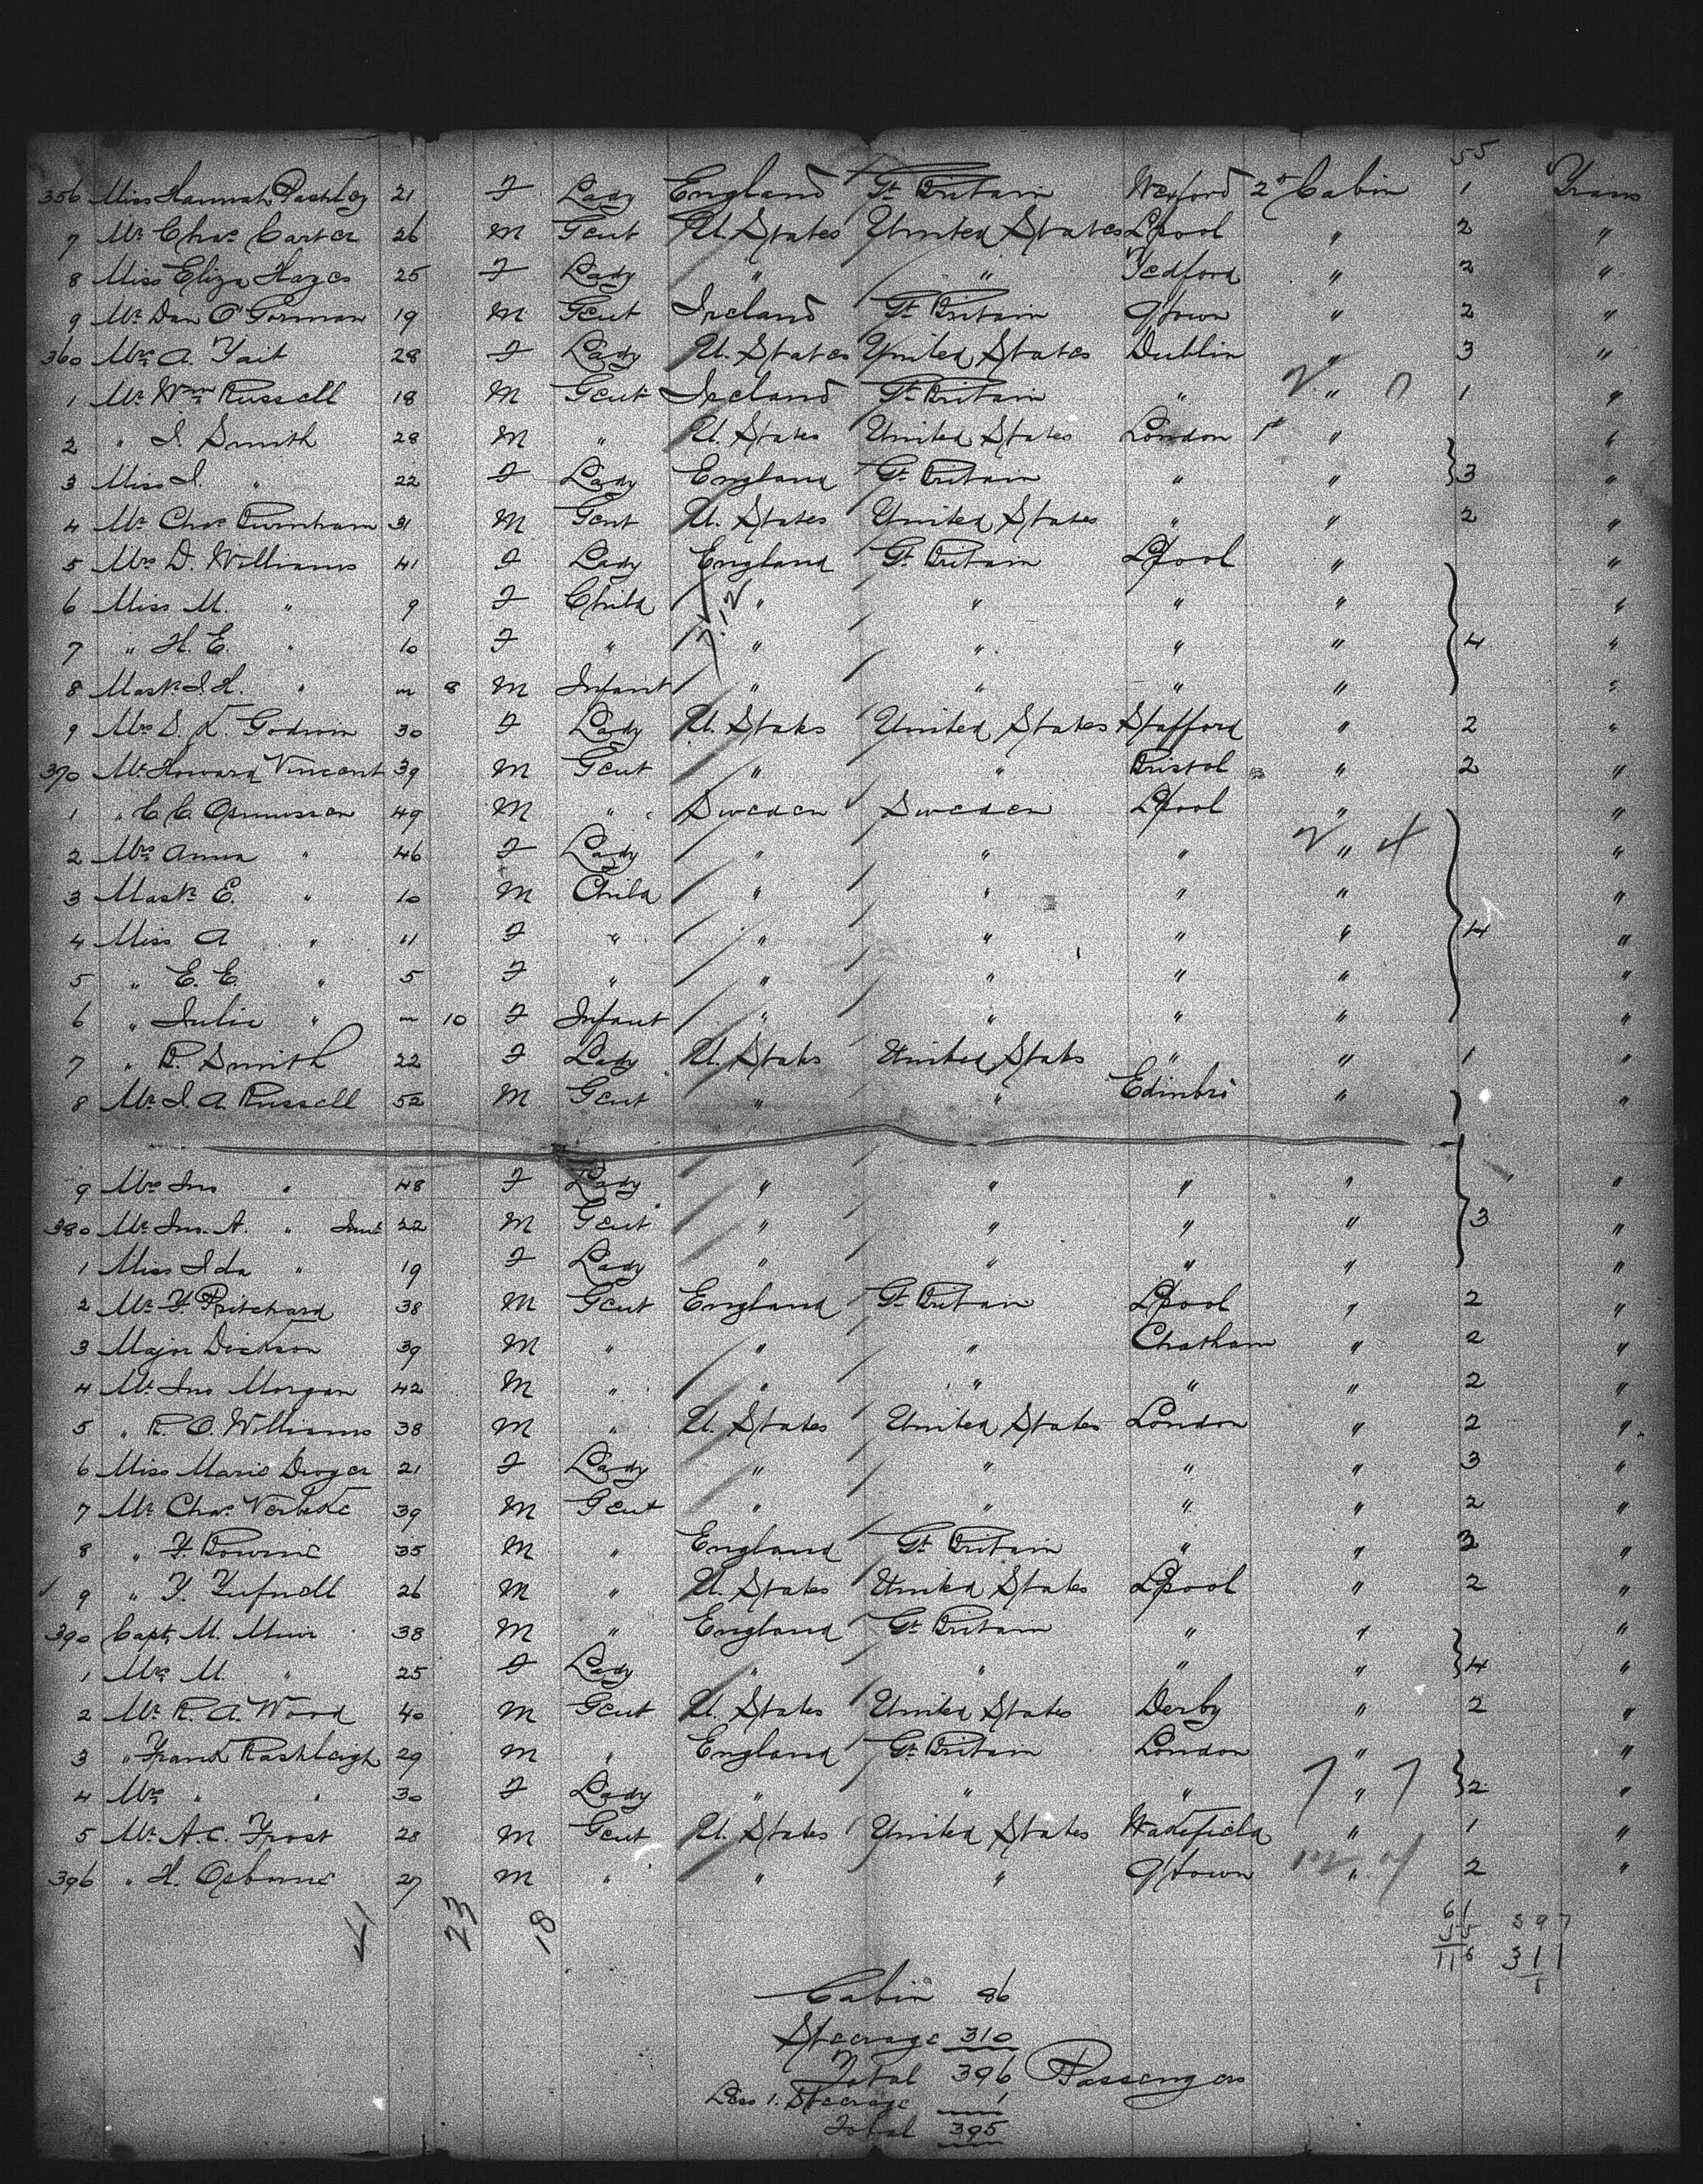 55
356 Miss Hannah Pashley 21 F Lady England Gt. Britain Wexford 2d Cabin 1 Trans
7 Mr. Chas. Carter 26 M Gent U. States United States L'pool " 2 "
8 Miss Eliza Hayes 25 F Lady " " " 2 "
9 Mr. Dan O'Gorman 19 M Gent Ireland Gt. Britain Q'town " 2 "
360 Mrs. A. Tait 28 F Lady U. States United States Dublin " 3 "
1 Mr. Wm. Russell 18 M Gent Ireland Gt. Britain " " 1 "
2 " J. Smith 28 M " U. States United States London 1st " "
3 Miss J. " 22 F Lady England Gt. Britain " " 3 "
4 Mr. Chas. Burnham 31 M Gent U. States United States " " 2 "
5 Mrs. D. Williams 41 F Lady England Gt. Britain L'pool " "
6 Miss M. " 9 F Child " " " " "
7 " H. E. " 10 F " " " " " 4 "
8 Mastr. J. H. " 8 M Infant " " " " "
9 Mrs. S. K. Godwin 30 F Lady U. States United States Stafford " 2 "
370 Mr. Howard Vincent 39 M Gent " " Bristol " 2 "
1 " C. C. Asmussen 49 M " Sweden Sweden L'pool " "
2 Mrs. Anna " 46 F Lady " " " " "
3 Mastr. E. " 10 M Child " " " " "
4 Miss A " 11 F " " " " " 4 "
5 " E. E. " 5 F " " " " " "
6 " Julie " 10 F Infant " " " " "
7 " R. Smith 22 F Lady U. States United States " " 1 "
8 Mr. J. A. Russell 52 M Gent " " Edinbro' " "
9 Mrs. Jno " 48 F Lady " " " " "
380 Mr. Jno. A. " Junr. 22 M Gent " " " " 3 "
1 Miss Ida " 19 F Lady " " " " "
2 Mr. F. Pritchard 38 M Gent England Gt. Britain L'pool " 2 "
3 Major Dickson 39 M " " " Chatham " 2 "
4 Mr. Jno Morgan 42 M " " " " " 2 "
5 " R. O. Williams 38 M " U. States United States London " 2 "
6 Miss Marie Droger 21 F Lady " " " " 3 "
7 Mr. Chas. Verbeke 39 M Gent " " " " 2 "
8 " F. Bowrie 35 M " England Gt. Britain " " 3 "
9 " T. Tufnell 26 M " U. States United States L'pool " 2 "
390 Capt. M. Muir 38 M " England Gt. Britain " " "
1 Mrs. M. " 25 F Lady " " " " 4 "
2 Mr. R. A. Wood 40 M Gent U. States United States Derby " 2 "
3 " Frank Rashleigh 29 M " England Gt. Britain London " "
4 Mrs. " " 30 F Lady " " " " 2 "
5 Mr. A. C. Frost 28 M Gent U. States United States Wakefield " 1 "
396 " H. Osborne 27 M " " " Q'town " 2 "
41 23 18
61 397
55 311
116
Cabin 86
Steerage 310
Total 396 Passengers
Less 1. Steerage 1
Total 395